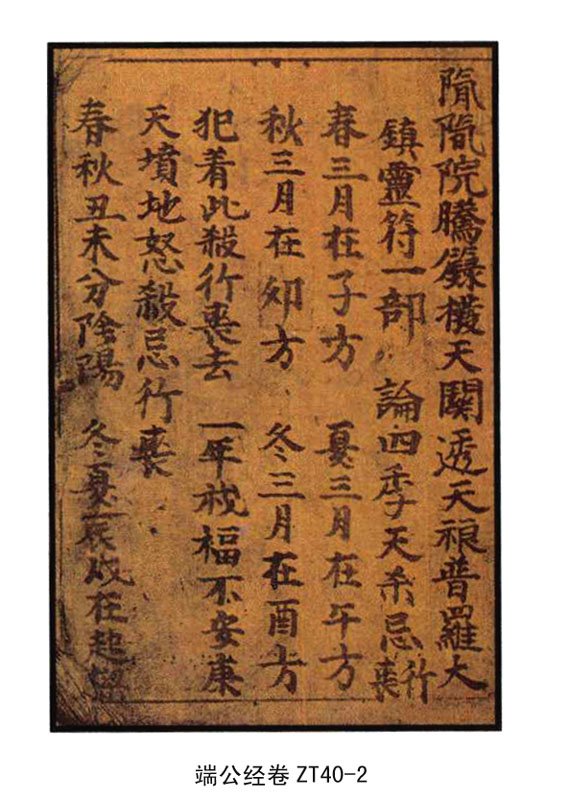 院騰錄機天關透天根普羅大
鎮靈符一部 論四季天杀忌行喪
春三月在子方 夏三月在午方
秋三月在卯方 冬三月在酉方
犯着此殺行喪去 一年枝福不安康
天墳地怒殺忌行喪
春秋丑未分陰陽 冬夏辰戌在起
端公经卷 ZT40-2